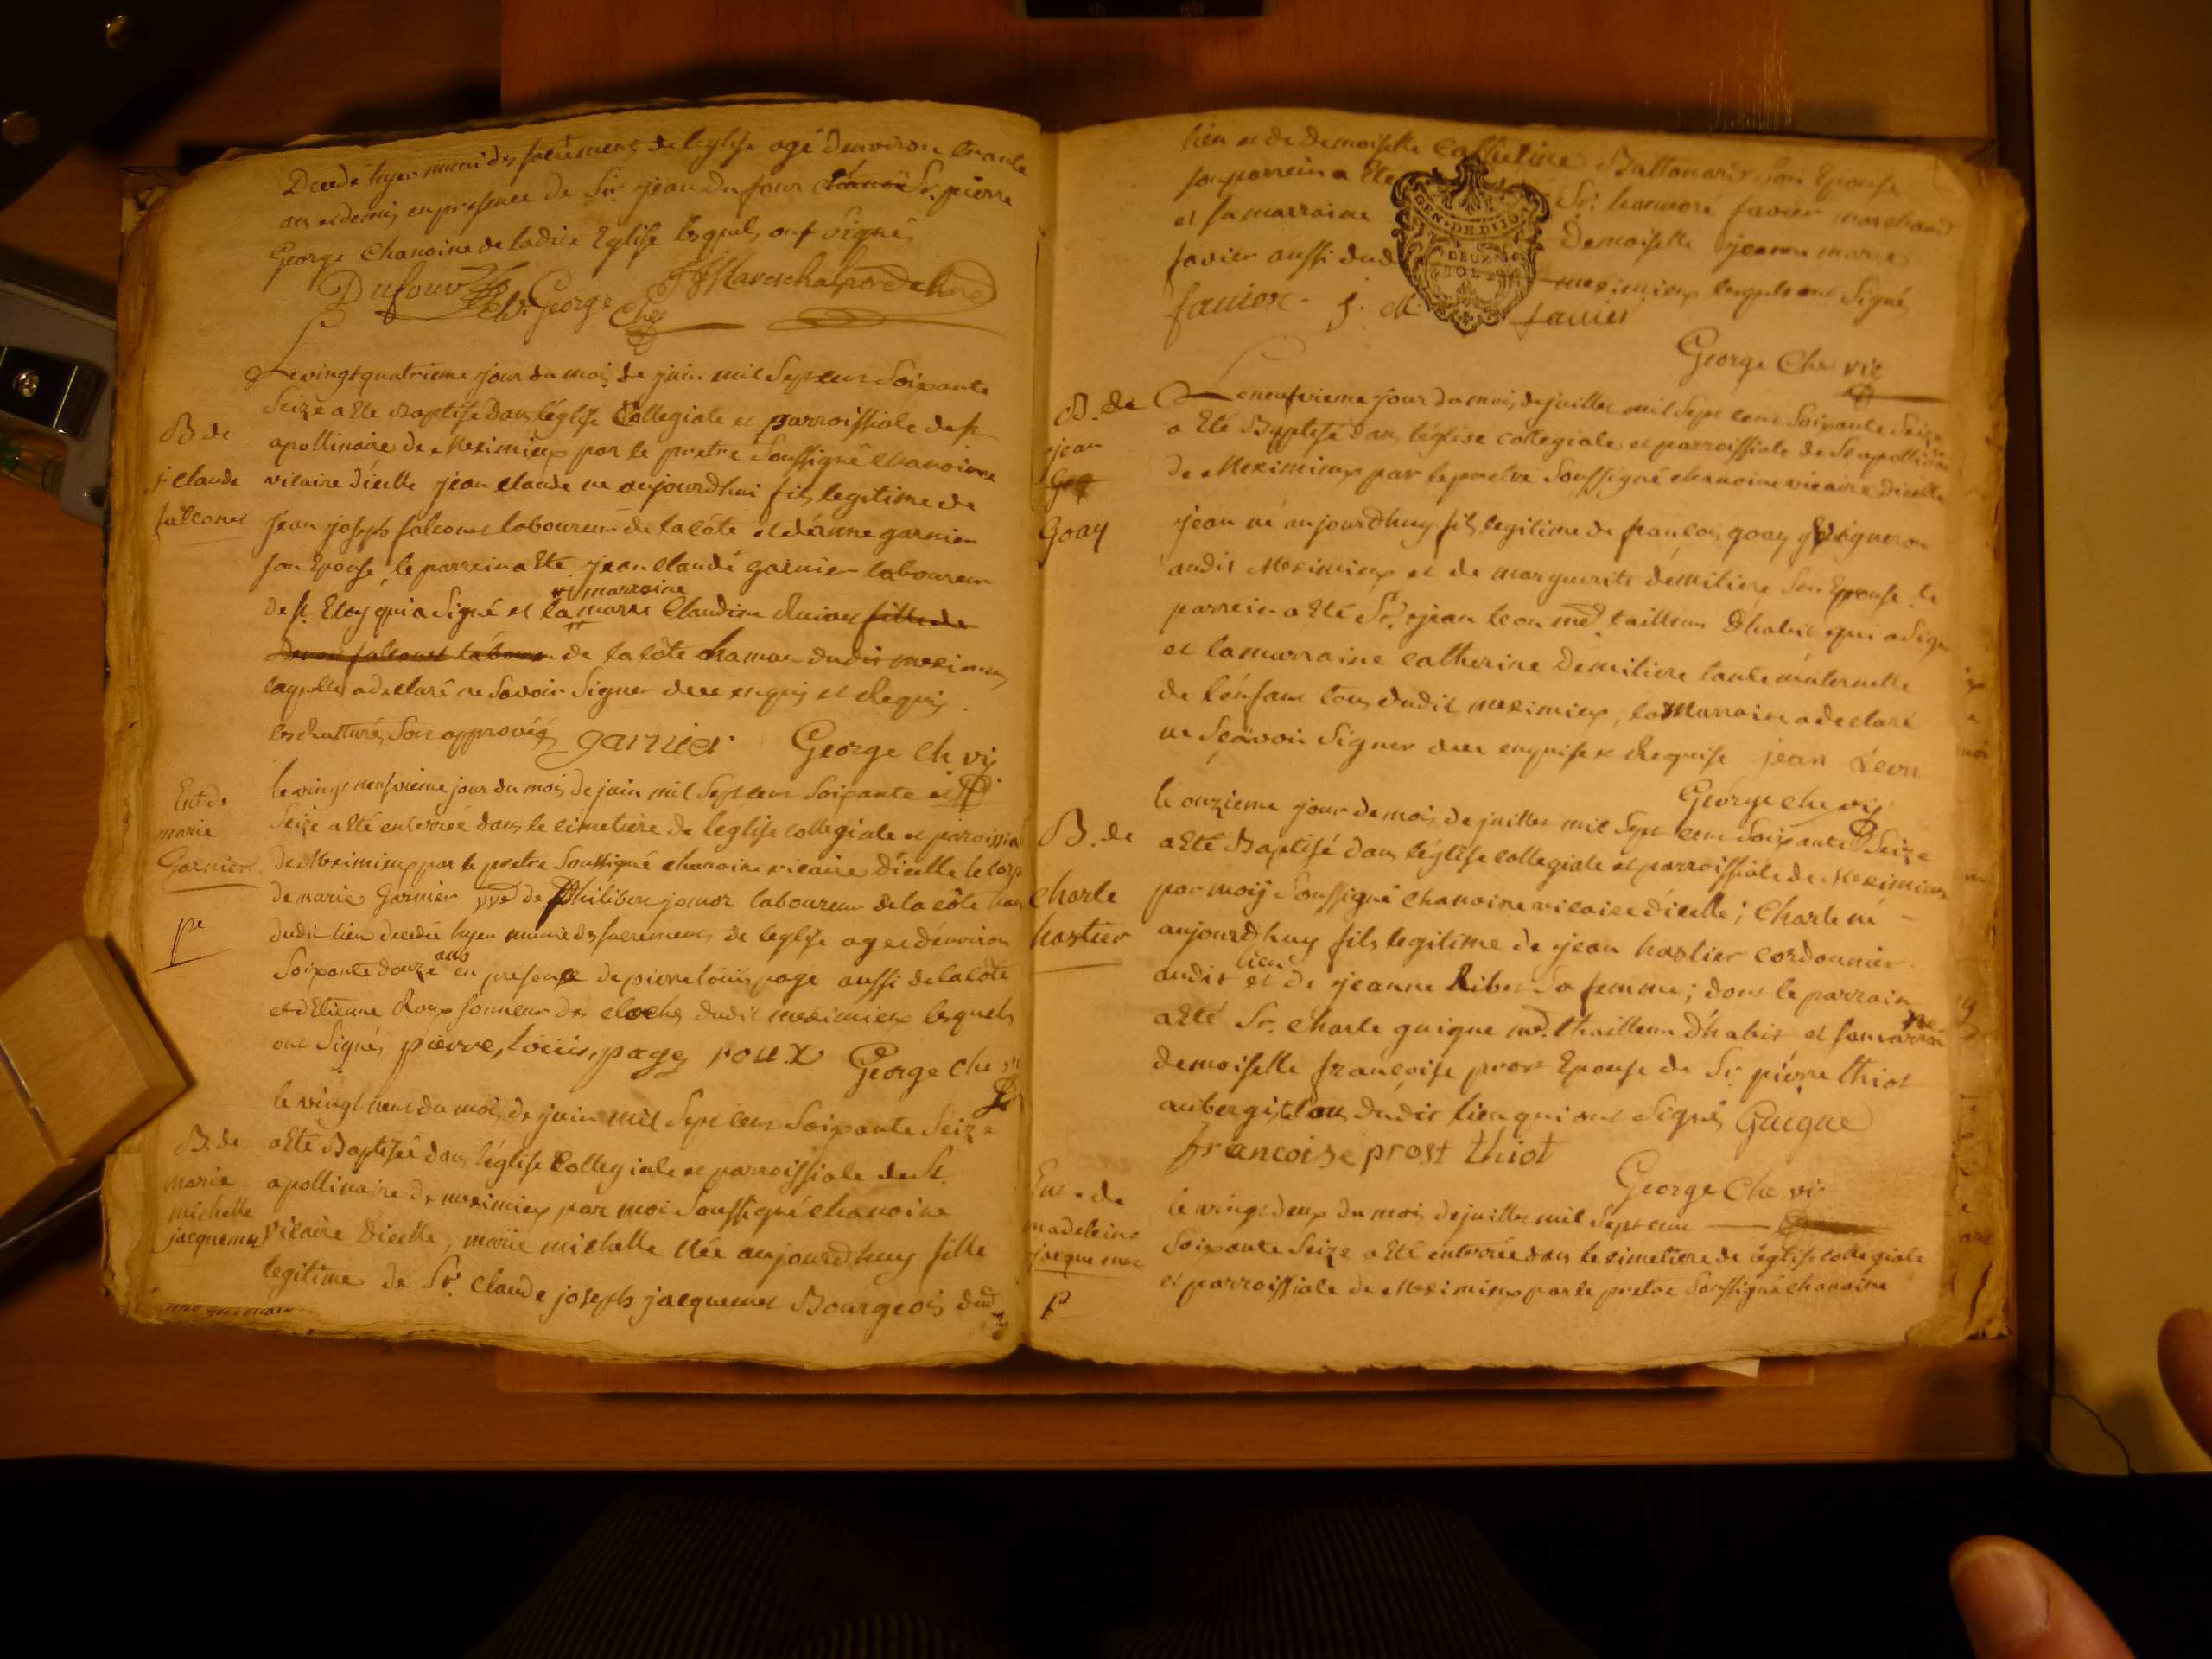 Decedé hyer muni des sacremens de leglise agé denviron trante
ans et demi, en presence de Sr. jean du four chanoi Sr. pierre
George Chanoine de ladite Eglise lesquels ont signés
Dufour George Che
Le vingt quatrieme jour du mois de juin mil Sept cens Soixante
Seize a Eté Baptisé dans léglise Collegiale et parroissiale de St
apollinaire de Meximieux par le pretre Soussigné chanoine
vicaire dicelle jean claude né aujourdhui fils legitime de
jean joseph falconet laboureur de la côte et déanne garnier
son Epouse, le parrein a Eté jean claudé garnier laboureur
marraine
de St. Eloy qui a signé et la marre Claudine
de la côte dudit meximieux
laquelle a declaré ne Savoir Signer de ce enquis et Requis
les Ratturés Son approvés garnier George ch vi
B de
j. claude
falconet
le vingt neufvieme jour du mois de juin mil Sept cens Soixante et
Seize a Eté enterrée dans le cimetiere de leglise collegiale et paroissia
de Meximieux par le pretre Soussigné chanoine vicaire dicelle le corps
de marie Garnier vve de Philibert laboureur de la côte
dudit lieu decedée hyer munie des sacremens de leglise agée dénviron
ans
Soixante douze en présence de pierre loüis page aussi de la côte
et dEtienne Roux sonneur des cloches dudit meximieux lesquels
ont Signés pierre, loüis, page roux George Che
Ent de
marie
Garnier
pe
le vingt neuf du mois de juin mil Sept cens Soixante Seize
a Eté Baptisée dans léglise Collegiale et parroissiale de St.
apollinaire de meximieux par moi Soussigné chanoine
vicaire Dicelle, marie michelle Née aujourdhuy fille
legitime de Sr. Claude joseph jacquemet Bourgeois dud
B. de
marie
michelle
jacquemet
lien et de Demoiselle Catherine Battonard son Epouse
son parrein a Eté Sr. honnoré favier marchand
et sa marraine Demoiselle jeanne marie
favier aussi dud meximieux lesquels ont Signé
GEN. DE DIJON
DEUX
SOLS
favier. j. M favier
George Che vic
Le neufvieme jour du mois de juillet mil Sept cens Soixante Seize
a Eté Baptisé dans léglise collegiale et parroissiale de St apollinaire
de Meximieux par le pretre Soussigné chanoine vicaire dicelle
jean né aujourdhuy fils legitime de françois goay vigneron
audit Meximieux et de marguerite démiliere son Epouse. le
parrein a Eté Sr. jean leon md. tailleur Dhabit qui a Signé
et la marraine catherine Demiliere tante máternelle
de lénfant tous dudit meximieux, la Marraine a declaré
ne Scavoir Signer de ce enquise et Requise jean Leon
George che vi
B. de
jean
Goay
le onzieme jour de mois de juillet mil Sept cens Soixante Seize
a Eté Baptisé dans léglise collegiale et parroissiale de Meximieux
par moij Soussigné chanoine vicaire dicelle; Charle né
aujourdhuy fils legitime de jean hostier cordonnier
lieu
audit et de jeanne Ribet Sa femme; dont le parrain
a Eté Sr. charle guigue md. thailleur D'habit et sa marraine
demoiselle françoise prost Epouse de Sr. pierre thiot
aubergiste tous dudit lieu qui ont Signés Guigue
francoise prost thiot
George Che vi
B. de
charle
hostier
le vingt deux du mois de juillet mil Sept cens
Soixante Seize a Eté enterrée dans le cimetiere de leglise collegiale
et parroissiale de Meximieux par le pretre Soussigné chanoine
Ent. de
madeleine
jacquemet
P